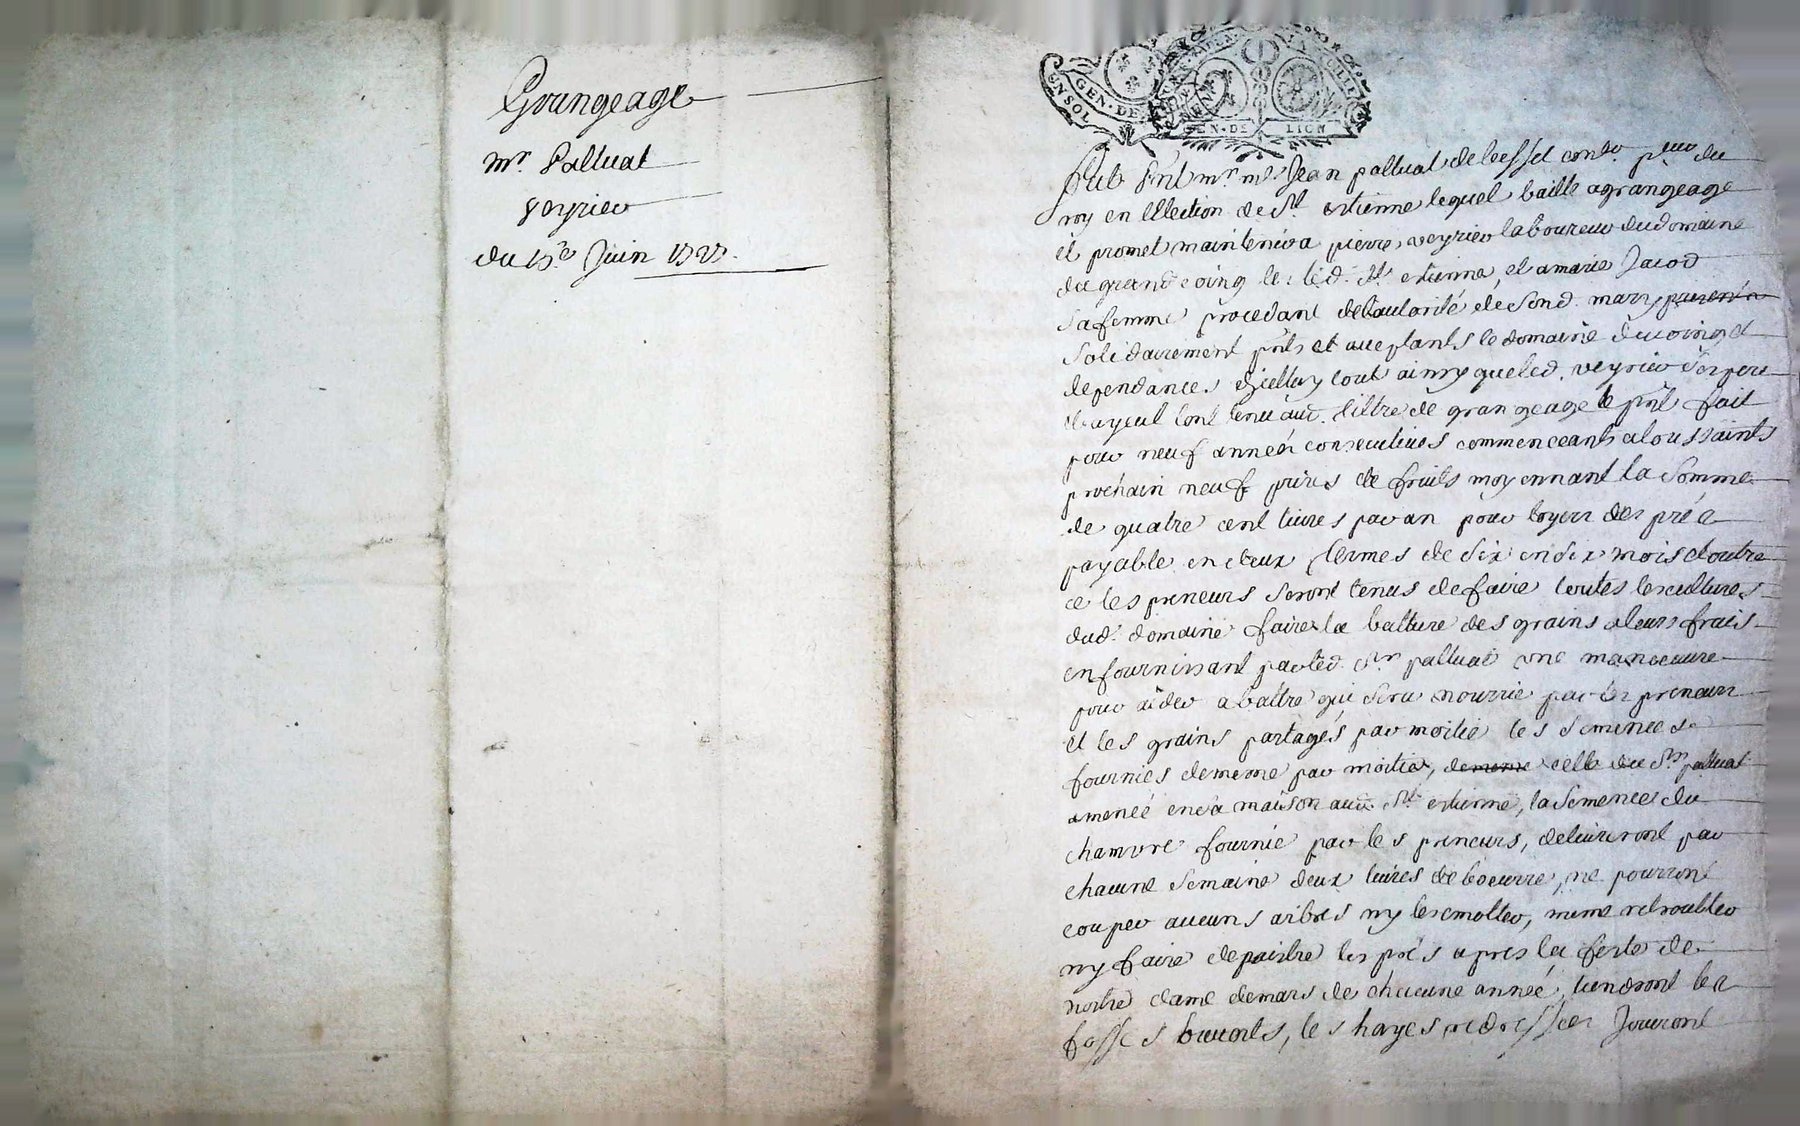 Grangeage
Mr. Palluat
Veyrier
du 15e Juin
UN SOL
GEN. DE
GEN. DE LION
Fut pnt mr me Jean palluat de besset conr. du
roy en lElection de St. estienne lequel baille a grangeage
et promet maintenir a pierre veyrier laboureur du domaine
du grand coing les led. St. estienne, et a marie Jacod
sa femme procedant de lautorité de sond. mary
solidairement pnts et acceptants le domaine du coing et
dependances dicelluy tout ainsy que led. veyrier son pere
et ayeul lont tenu aud. tiltre de grangeage le pnt fait
pour neuf années consecutives commenceants a la toussaints
prochain neuf prises de fruits moyennant la somme
de quatre cent livres par an pour loyer des prés
payable en deux termes de six en six mois et outre
ce les preneurs seront tenus de faire toutes les cultures
dud. domaine faire la batture des grains a leurs frais
en fournissant par led. Sr. palluat une manoeuvre
pour aider a battre qui sera nourrie par les preneurs
et les grains partagés par moitié les semences
fournies de meme par moitié, de meme celle du Sr. palluat
amenée en sa maison aud. St. estienne, la semence du
chamvre fournie par les preneurs, delivreront par
chacune semaine deux livres de beurre, ne pourront
couper aucuns arbres ny les emotter, meme retroubler
ny faire depaistre les prés apres la feste de
nostre dame de mars de chacune année, tiendront les
fossés ouverts, les hayes redressées Jouiront